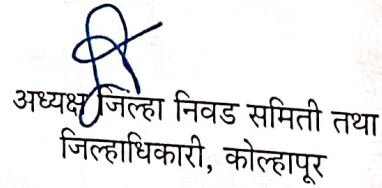 अध्यक्ष जिल्हा निवड समिती तथा
जिल्हाधिकारी, कोल्हापूर